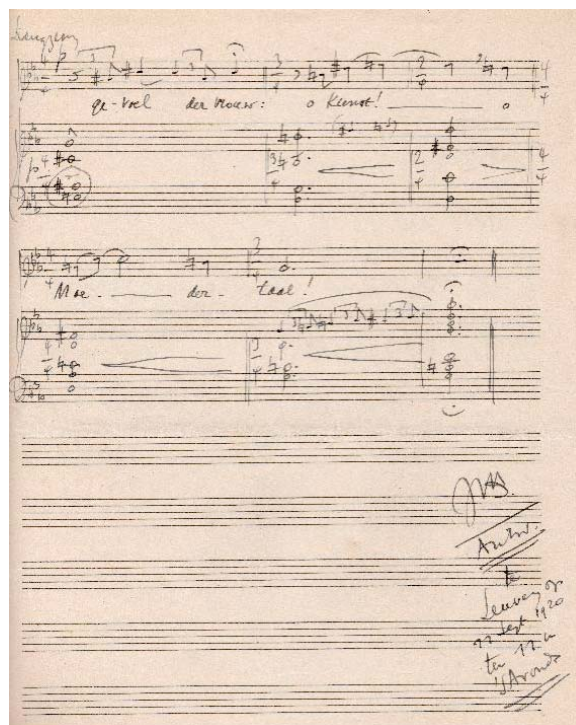 Langzaam
ge-voel der : o Kunst! o
Moe- der- taal!
Antw.
te
Leuven op
22 Sept 1920
ten 12 u
's Avonds